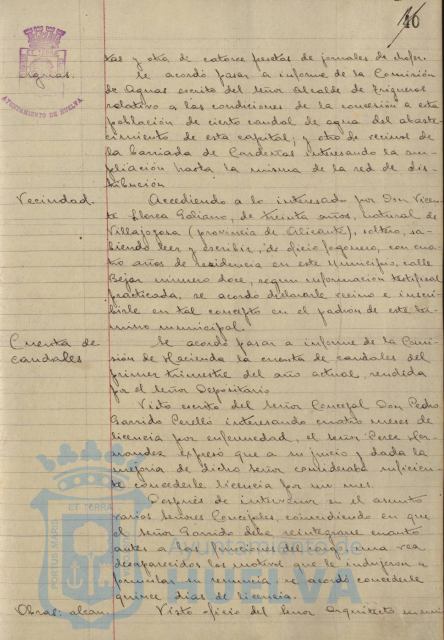 10
tas y otra de catorce pesetas de jornales de chofer.
Aguas. Se acordó pasar a informe de la Comisión
de Aguas escrito del Señor Alcalde de Trigueros
relativo a las condiciones de la concesión a esta
población de cierto caudal de agua del abaste-
cimiento de esta capital; y otro de vecinos de
la barriada de Cardeñas interesando la am-
pliación hasta la misma de la red de dis-
tribución
Vecindad. Accediendo a lo interesado por Don Vicen-
te Llorca Galiano, de treinta años, natural de
Villajoyosa (provincia de Alicante), soltero, sa-
biendo leer y escribir, de oficio fogonero, con cua-
tro años de residencia en este Municipio, calle
Bejar número doce, según información testifical
practicada, se acordó declararle vecino e inscri-
birle en tal concepto en el padrón de este tér-
mino municipal.
Cuenta de caudales Se acordó pasar a informe de la Comi-
sión de Hacienda la cuenta de caudales del
primer trimestre del año actual, rendida
por el Señor Depositario
Visto escrito del Señor Concejal Don Pedro
Garrido Perelló interesando cuatro meses de
licencia por enfermedad, el Señor Perez Her-
nandez expresó que a su juicio y dada la
mejoría de dicho Señor consideraba suficien-
te concederle licencia por un mes.
Después de intervenir en el asunto
varios Señores Concejales, coincidiendo en que
el Señor Garrido debe reintegrarse cuanto
antes a las funciones del cargo, una vez
desaparecidos los motivos que le indujeron a
formular su renuncia, se acordó concederle
quince días de licencia.
Obras: alcan. Visto oficio del Señor Arquitecto
AYUNTAMIENTO DE HUELVA
PORTUS MARIS ET TERRAE
Ayuntamiento de
HUELVA